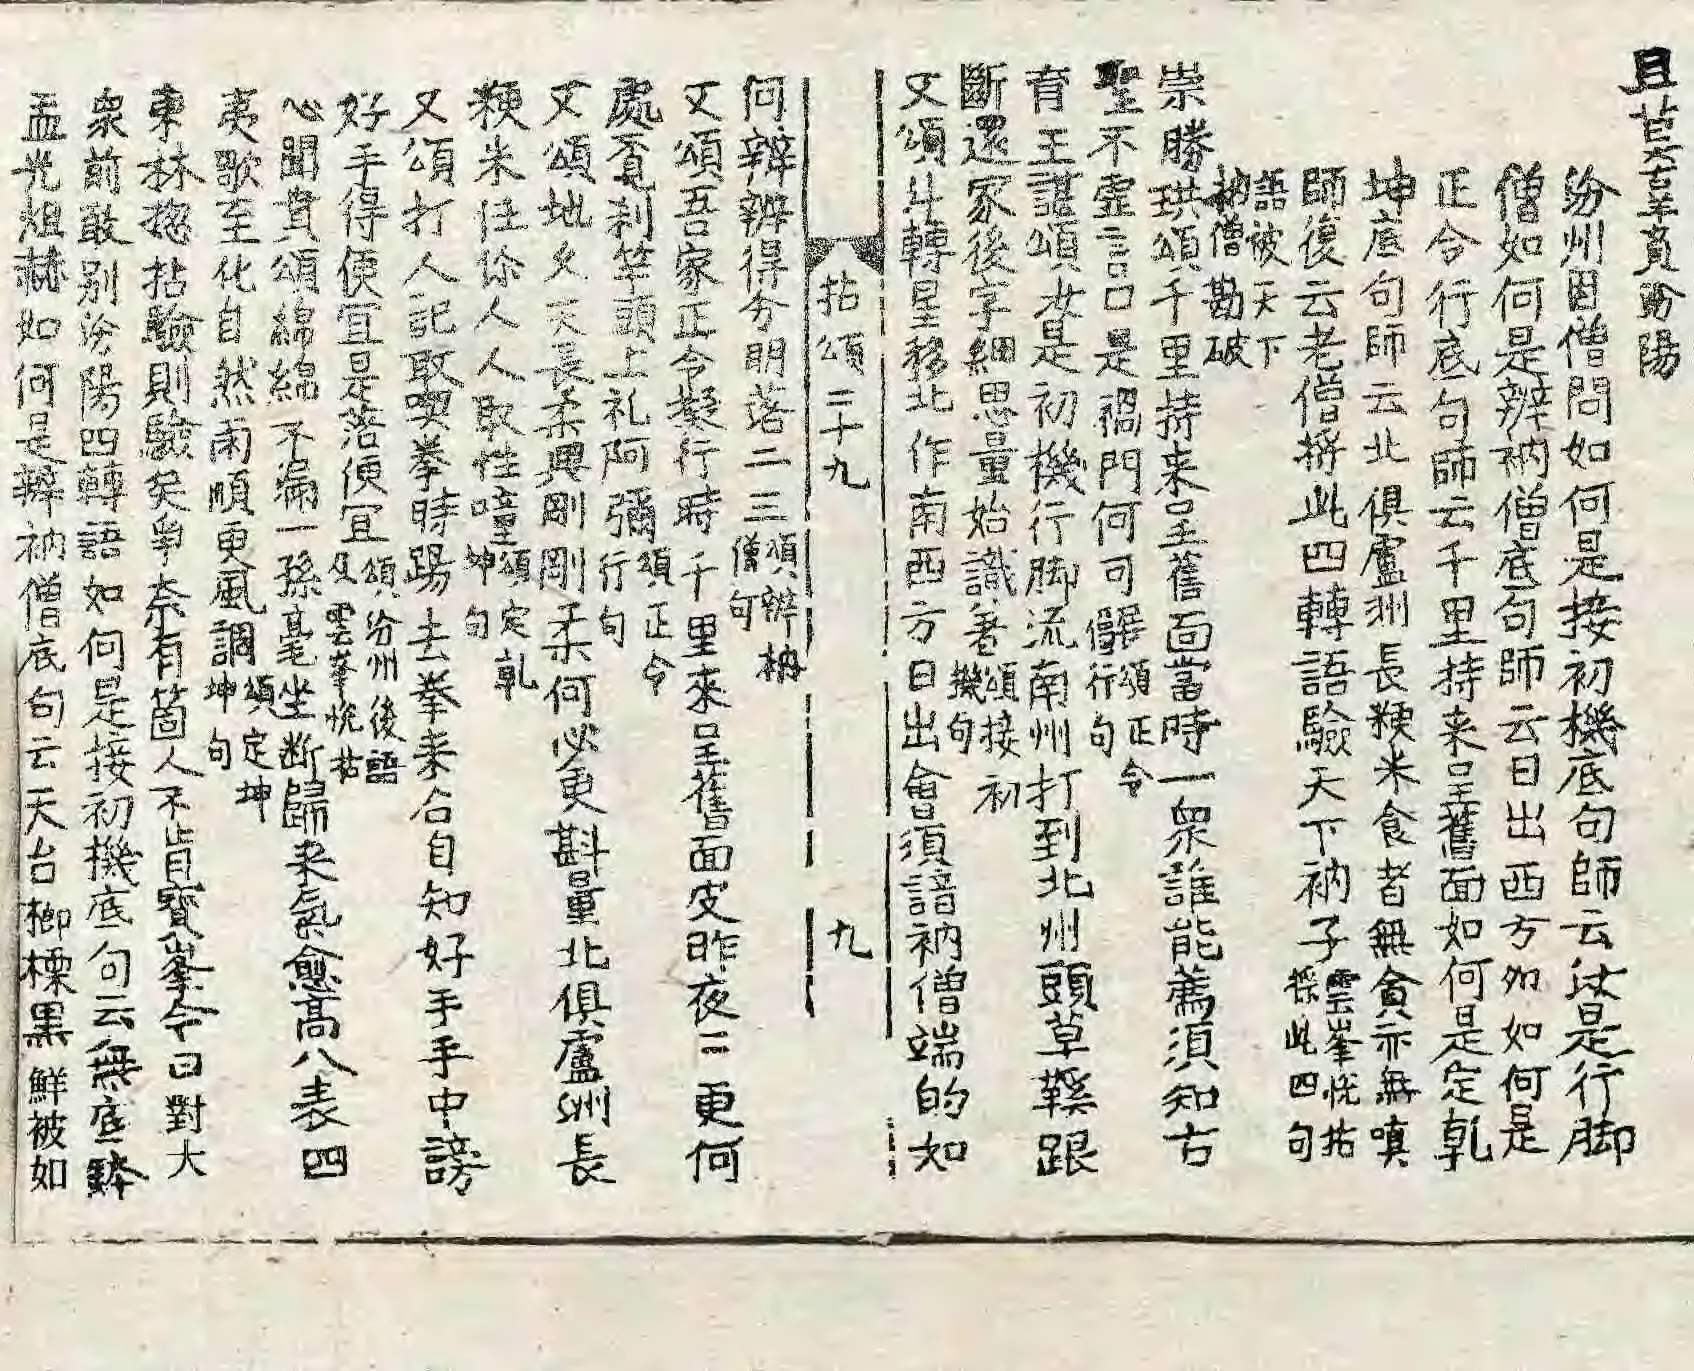 汾陽
汾州因僧問如何是接初機底句師云汝是行脚
僧如何是辨衲僧底句師云日出西方夘如何是
正令行底句師云千里持来呈舊面如何是定乹
坤底句師云北俱盧洲長粳米食者無貪亦無嗔
師復云老僧將此四轉語驗天下衲子雲峯恱拈
採此四句
語被天下
衲僧勘破
崇勝珙頌千里持来呈舊面當時一衆誰能薦須知古
聖不虛言口是禍門何可頌正令
行句
育王諶頌汝是初機行脚流南州打到北州頭草鞵跟
斷還家後字細思量始識羞頌接初
機句
又頌斗轉星移北作南西方日出會須諳衲僧端的如
拈頌二十九 九
何辨辨得分明落二三頌辨衲
僧句
又頌吾家正令擬行時千里來呈舊面皮昨夜三更何
處覔刹竿頭上礼阿彌頌正令
行句
又頌地久天長柔與剛剛柔何必更斟量北俱盧洲長
粳米任你人人取性噇頌定乹
坤句
又頌打人記取喫拳時踢去拳来各自知好手手中謗
好手得便宜是落便宜頌汾州後語
及雲峯恱拈
心聞賁頌綿綿綿不漏一孫毫坐断歸来氣愈高八表四
夷歌至化自然雨順更風調頌定坤
坤句
東林揔拈驗則驗矣爭奈有箇人不肯寶峯今日對大
衆前敢别汾陽四轉語如何是接初機底句云無底鉢
盂光烜赫如何是辨衲僧底句云天台楖㮚黒鮮被如